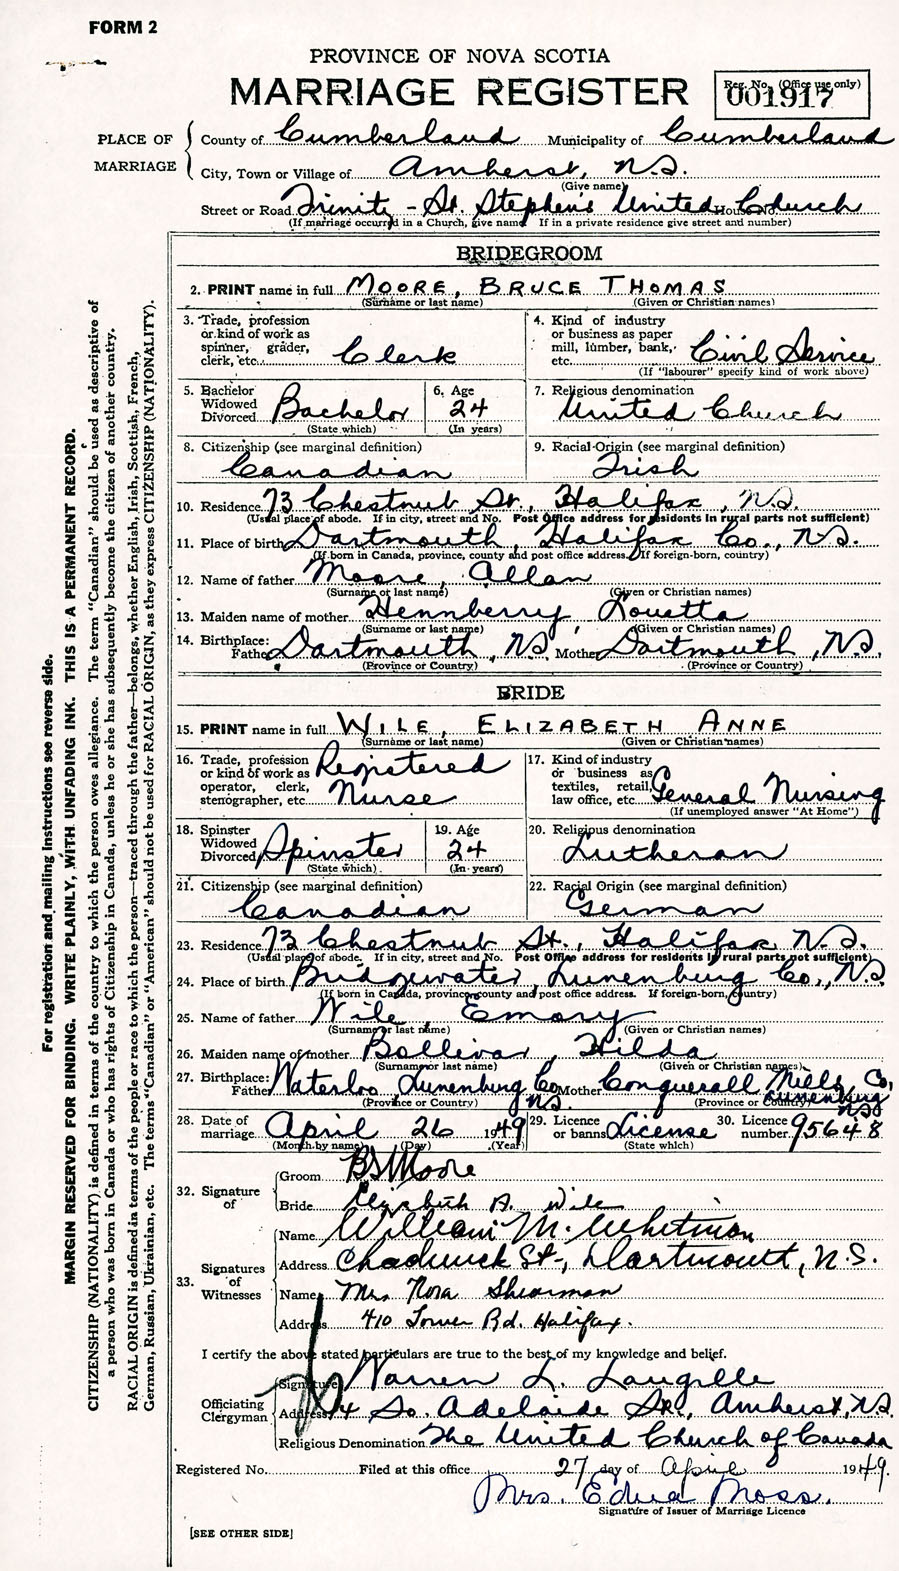 FORM 2
PROVINCE OF NOVA SCOTIA
MARRIAGE REGISTER
Reg. No. (Office use only)
001917
PLACE OF MARRIAGE
County of Cumberland Municipality of Cumberland
City, Town or Village of Amherst, N.S.
(Give name)
Street or Road Trinity - St. Stephen's United Church House No.
(If marriage occurred in a Church, give name. If in a private residence give street and number)
BRIDEGROOM
2. PRINT name in full MOORE, BRUCE THOMAS
(Surname or last name) (Given or Christian names)
3. Trade, profession or kind of work as spinner, grader, clerk, etc. Clerk
4. Kind of industry or business as paper mill, lumber, bank, etc. Civil Service
(If "labourer" specify kind of work above)
5. Bachelor Widowed Divorced Bachelor
(State which)
6. Age 24
(In years)
7. Religious denomination United Church
8. Citizenship (see marginal definition) Canadian
9. Racial Origin (see marginal definition) Irish
10. Residence 73 Chestnut St., Halifax, N.S.
(Usual place of abode. If in city, street and No. Post Office address for residents in rural parts not sufficient)
11. Place of birth Dartmouth, Halifax Co., N.S.
(If born in Canada, province, county and post office address. If foreign-born, country)
12. Name of father Moore, Allan
(Surname or last name) (Given or Christian names)
13. Maiden name of mother Hennberry, Louetta
(Surname or last name) (Given or Christian names)
14. Birthplace: Father Dartmouth, N.S. Mother Dartmouth, N.S.
(Province or Country) (Province or Country)
BRIDE
15. PRINT name in full WILE, ELIZABETH ANNE
(Surname or last name) (Given or Christian names)
16. Trade, profession or kind of work as operator, clerk, stenographer, etc. Registered Nurse
17. Kind of industry or business as textiles, retail, law office, etc. General Nursing
(If unemployed answer "At Home")
18. Spinster Widowed Divorced Spinster
(State which)
19. Age 24
(In years)
20. Religious denomination Lutheran
21. Citizenship (see marginal definition) Canadian
22. Racial Origin (see marginal definition) German
23. Residence 73 Chestnut St., Halifax N.S.
(Usual place of abode. If in city, street and No. Post Office address for residents in rural parts not sufficient)
24. Place of birth Bridgewater, Lunenburg Co., N.S.
(If born in Canada, province, county and post office address. If foreign-born, country)
25. Name of father Wile, Emory
(Surname or last name) (Given or Christian names)
26. Maiden name of mother Bolliver, Hilda
(Surname or last name) (Given or Christian names)
27. Birthplace: Father Waterloo Lunenburg Co. N.S. Mother Conquerall Mills, Lunenburg Co., N.S.
(Province or Country) (Province or Country)
28. Date of marriage April 26 1949
(Month by name) (Day) (Year)
29. Licence or banns License
(State which)
30. Licence number 95648
32. Signature of
Groom BSMoore
Bride Elizabeth A. Wile
33. Signatures of Witnesses
Name William M. Whitman
Address Chadwick St., Dartmouth, N.S.
Name Mrs. Nora Shearman
Address 410 Tower Rd. Halifax.
I certify the above stated particulars are true to the best of my knowledge and belief.
Officiating Clergyman
Signature Warren L. Langille
Address 4 So. Adelaide St., Amherst, N.S.
Religious Denomination The United Church of Canada
Registered No. Filed at this office 27 day of April 1949.
Mrs. Edna Moss.
Signature of Issuer of Marriage Licence
[SEE OTHER SIDE]
For registration and mailing instructions see reverse side.
MARGIN RESERVED FOR BINDING. WRITE PLAINLY, WITH UNFADING INK. THIS IS A PERMANENT RECORD.
CITIZENSHIP (NATIONALITY) is defined in terms of the country to which the person owes allegiance. The term "Canadian" should be used as descriptive of
a person who was born in Canada or who has rights of Citizenship in Canada, unless he or she has subsequently become the citizen of another country.
RACIAL ORIGIN is defined in terms of the people or race to which the person—traced through the father—belongs, whether English, Irish, Scottish, French,
German, Russian, Ukrainian, etc. The terms "Canadian" or "American" should not be used for RACIAL ORIGIN, as they express CITIZENSHIP (NATIONALITY).